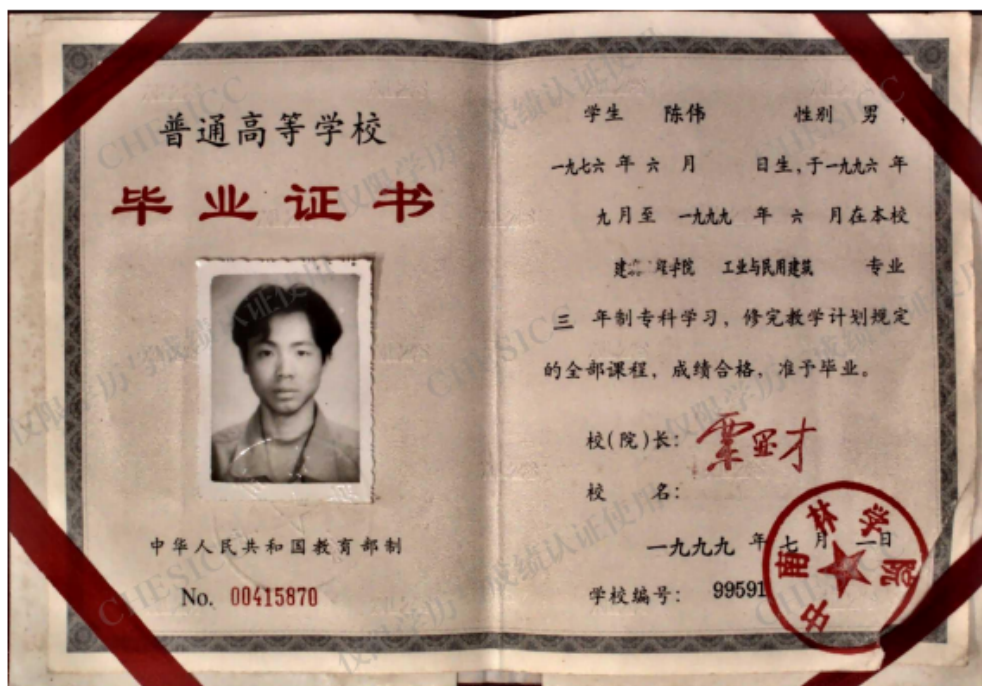 普通高等学校
毕业证书
中华人民共和国教育部制
No. 00415870
学生 陈伟 性别 男,
一九七六年六月 日生,于一九九六年
九月至一九九九年六月在本校
建 学院 工业与民用建筑 专业
三年制专科学习,修完教学计划规定
的全部课程,成绩合格,准予毕业。
校(院)长:
校 名:
一九九九年七月一日
学校编号: 99591
中南林学院
CHESICC
仅限学历与成绩认证使用